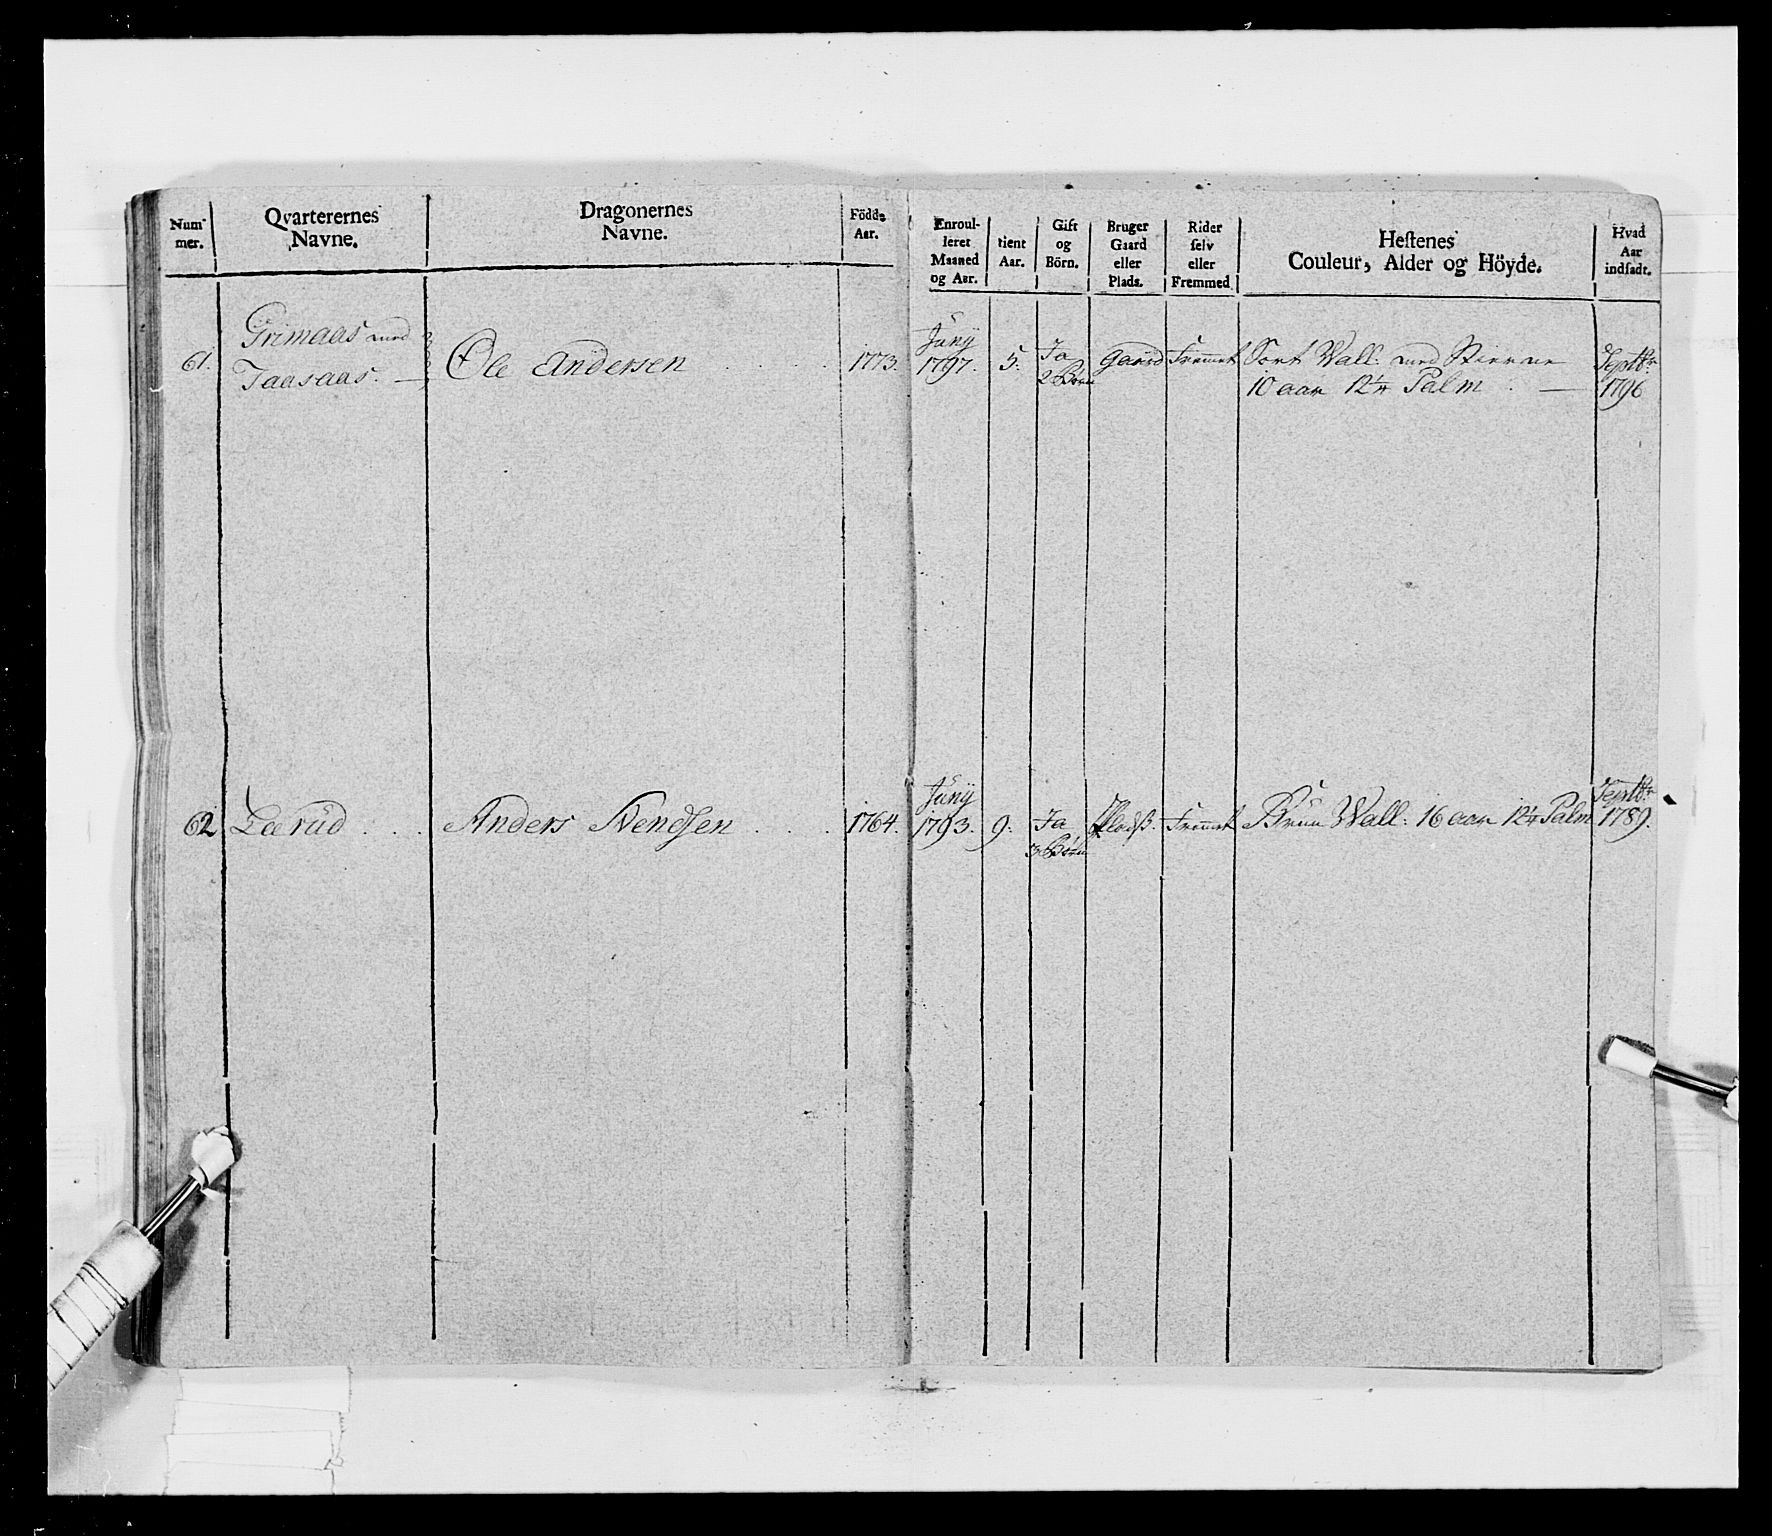 Num-
mer.
Qvarterernes
Navne.
Dragonernes
Navne.
Födde
Aar.
Enroul-
leret
Maaned
og Aar.
tient
Aar.
Gift
og
Börn.
Bruger
Gaard
eller
Plads.
Rider
selv
eller
Fremmed
Hestenes
Couleur, Alder og Höyde.
Hvad
Aar
indsadt.
61.
Grimaas med
Taasaas.
Ole Andersen
1773.
Juny
1797.
5.
Ja
2 Börn
Gaard
Fremet
Sort Vall: med Stierne
10 aar 12¼ Palm
Septbr
1796
62
Lærud
Anders
1764.
Juny
1793.
9.
Ja
3 Börn
Pladß.
Fremet
Bruun Wall: 16 aar 12¼ Palm
Septbr
1789.